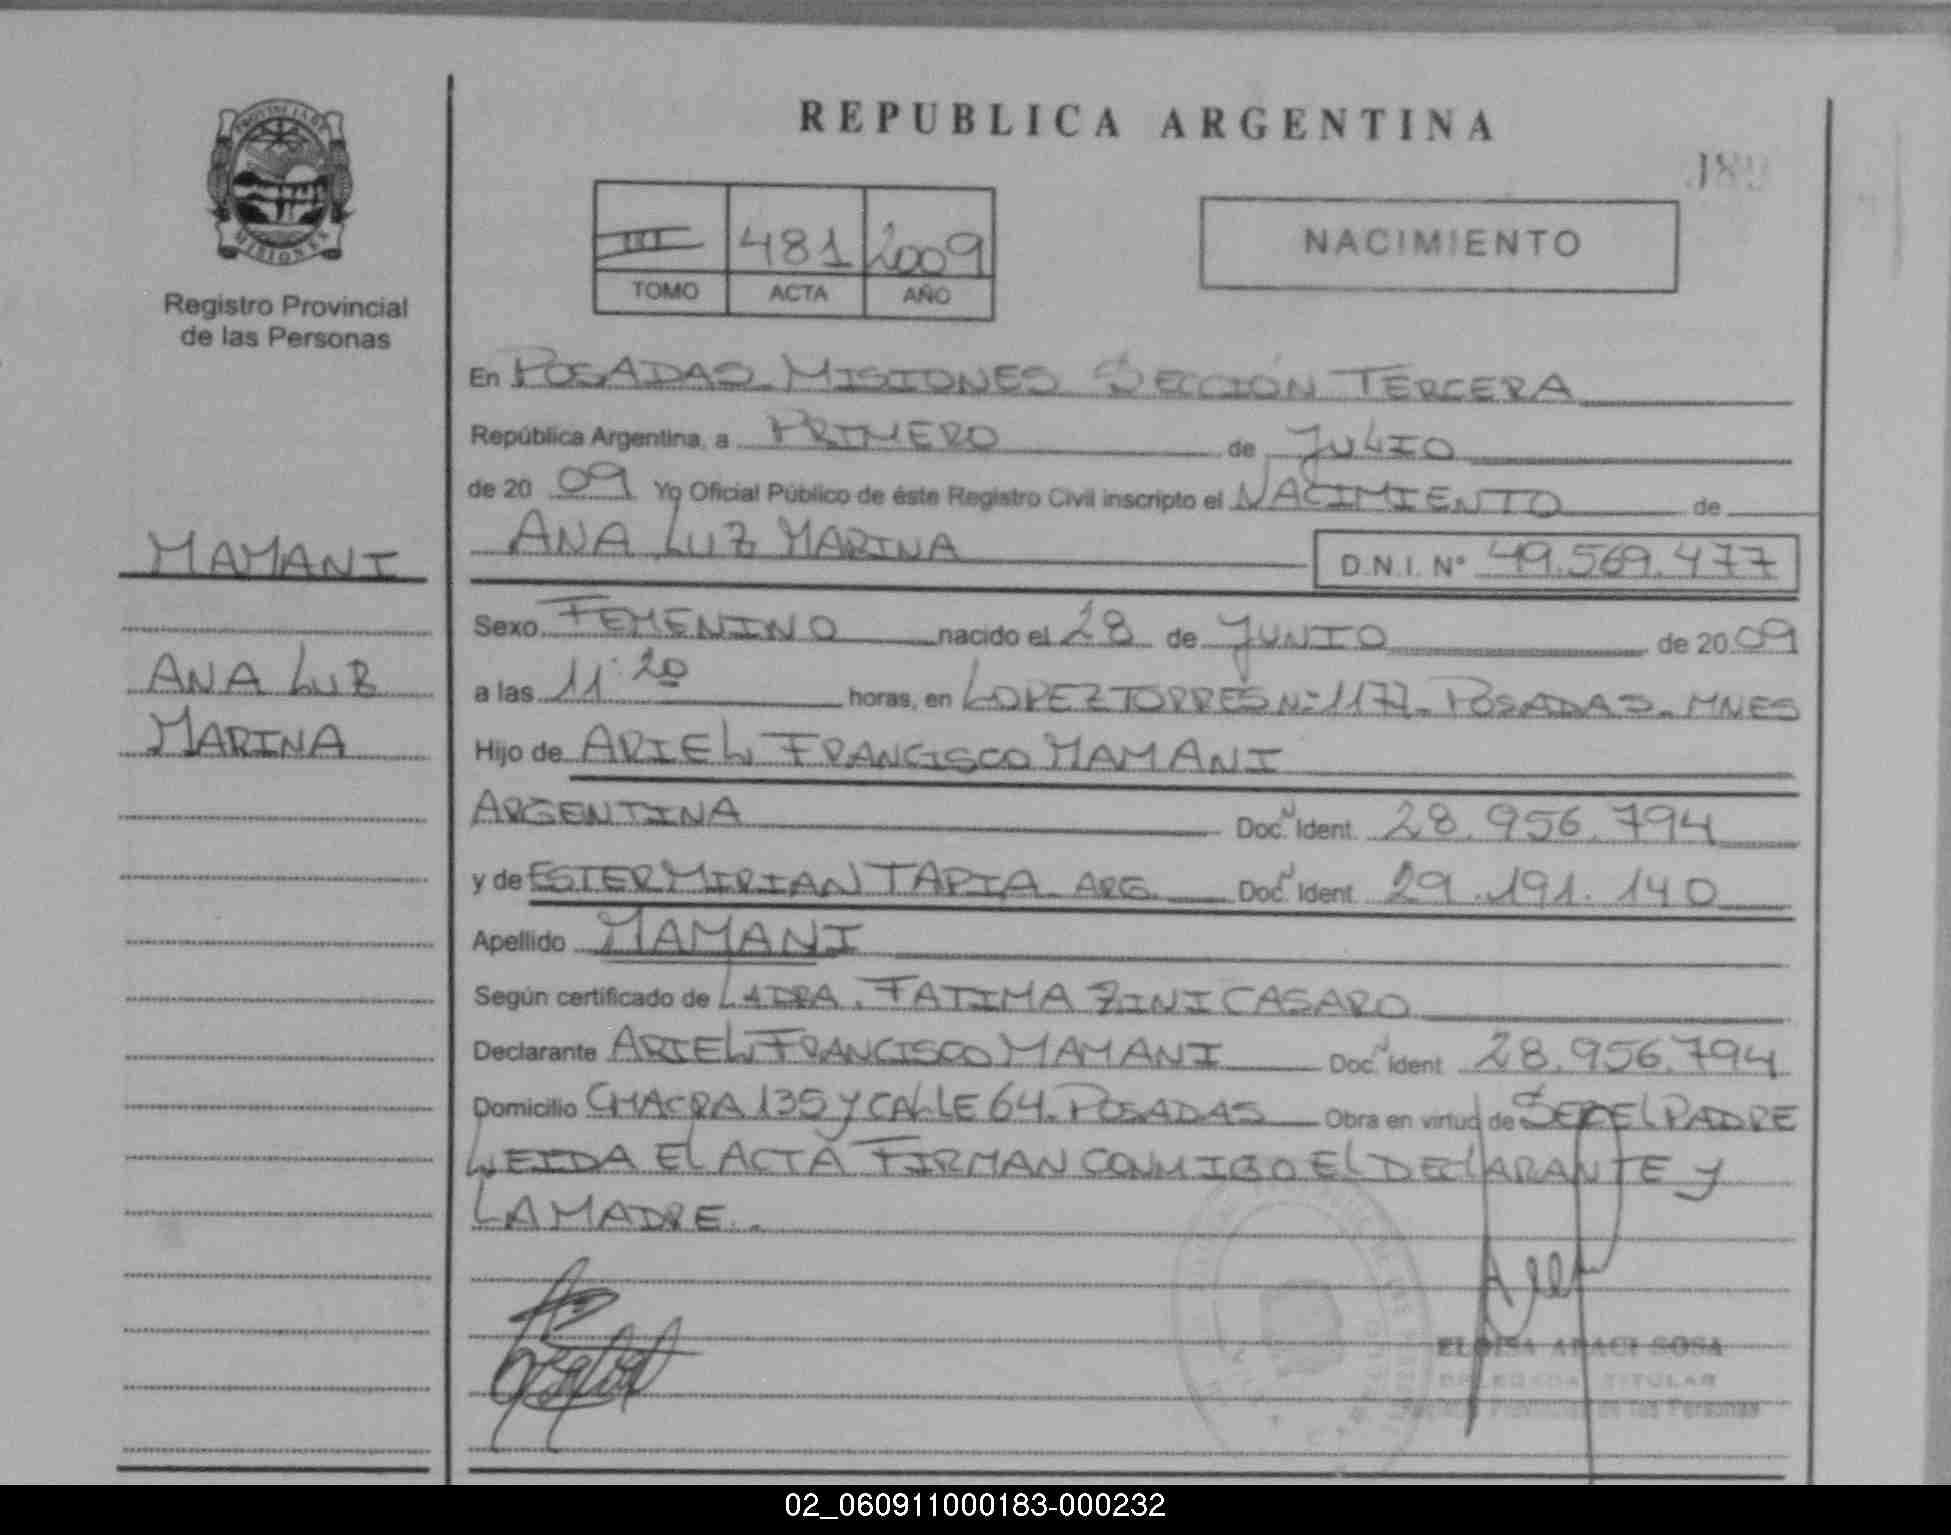 REPUBLICA ARGENTINA
189
PROVINCIA DE
MISIONES
Registro Provincial
de las Personas
III 481 2009
TOMO ACTA AÑO
NACIMIENTO
En POSADAS - MISIONES SECCIÓN TERCERA
República Argentina, a PRIMERO de JULIO
de 20 09 Yo Oficial Público de éste Registro Civil inscripto el NACIMIENTO de
ANA LUZ MARINA D.N.I. Nº 49.569.477
MAMANI
ANA LUZ
MARINA
Sexo FEMENINO nacido el 28 de JUNIO de 20 09
a las 11:20 horas, en LOPEZ TORRES Nº 1177 - POSADAS - MNES
Hijo de ARIEL FRANCISCO MAMANI
ARGENTINA Doc. Ident. 28.956.794
y de ESTER MIRIAN TAPIA ARG. Doc. Ident. 29.191.140
Apellido MAMANI
Según certificado de FATIMA ZINI CASARO
Declarante ARIEL FRANCISCO MAMANI Doc. Ident. 28.956.794
Domicilio CHACRA 135 Y CALLE 64 - POSADAS Obra en virtud de SER EL PADRE
LEIDA EL ACTA FIRMAN CONMIGO EL DECLARANTE Y
LA MADRE.
ELOISA ARACI SOSA
DELEGADA TITULAR
Registro Provincial de las Personas
02_060911000183-000232